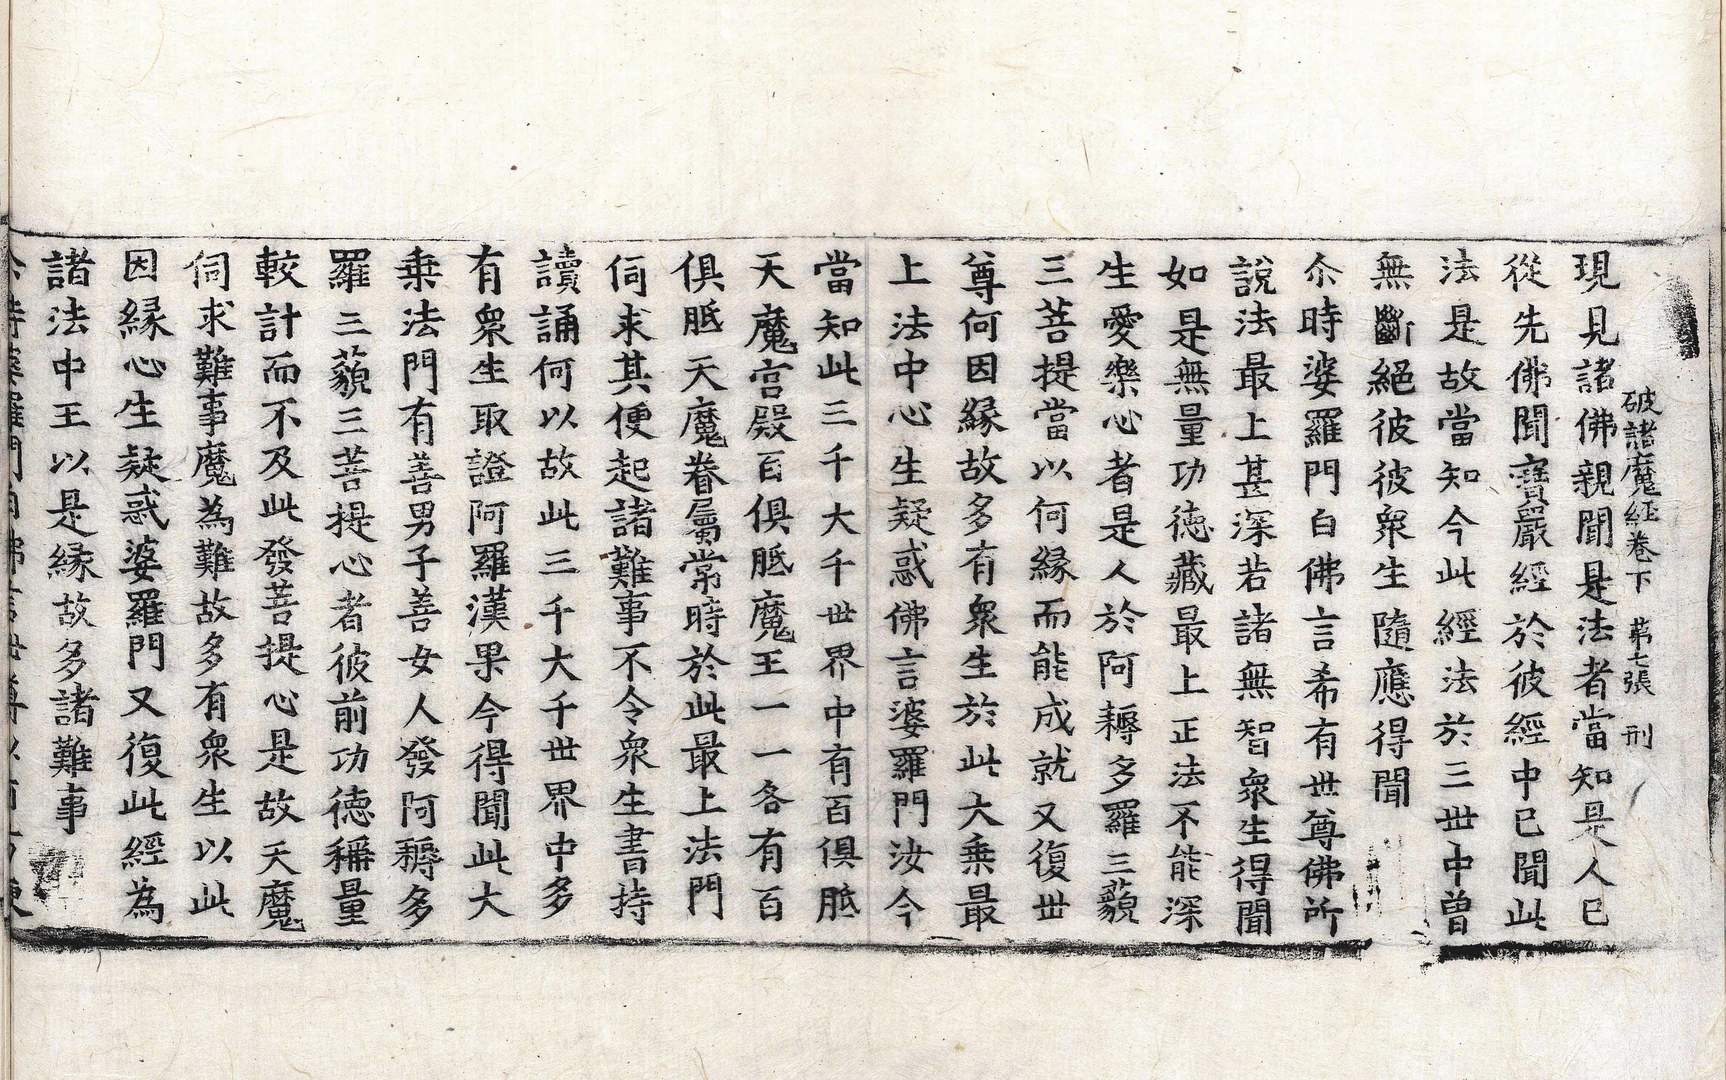 破諸魔經卷下 苐七張 刑
現見諸佛親聞是法者當知是人已
從先佛聞寶嚴經於彼經中已聞此
法是故當知今此經法於三世中曾
無斷絕彼彼衆生隨應得聞
尒時婆羅門白佛言希有世尊佛所
說法最上甚深若諸無智衆生得聞
如是無量功德藏最上正法不能深
生愛樂心者是人於阿耨多羅三藐
三菩提當以何緣而能成就又復世
尊何因緣故多有衆生於此大乗最
上法中心生疑惑佛言婆羅門汝今
當知此三千大千世界中有百俱胝
天魔宮殿百俱胝魔王一一各有百
俱胝天魔眷屬常時於此最上法門
伺求其便起諸難事不令衆生書持
讀誦何以故此三千大千世界中多
有衆生取證阿羅漢果今得聞此大
乗法門有善男子善女人發阿耨多
羅三藐三菩提心者彼前功德稱量
較計而不及此發菩提心是故天魔
伺求難事魔為難故多有衆生以此
因緣心生疑惑婆羅門又復此經為
諸法中王以是緣故多諸難事